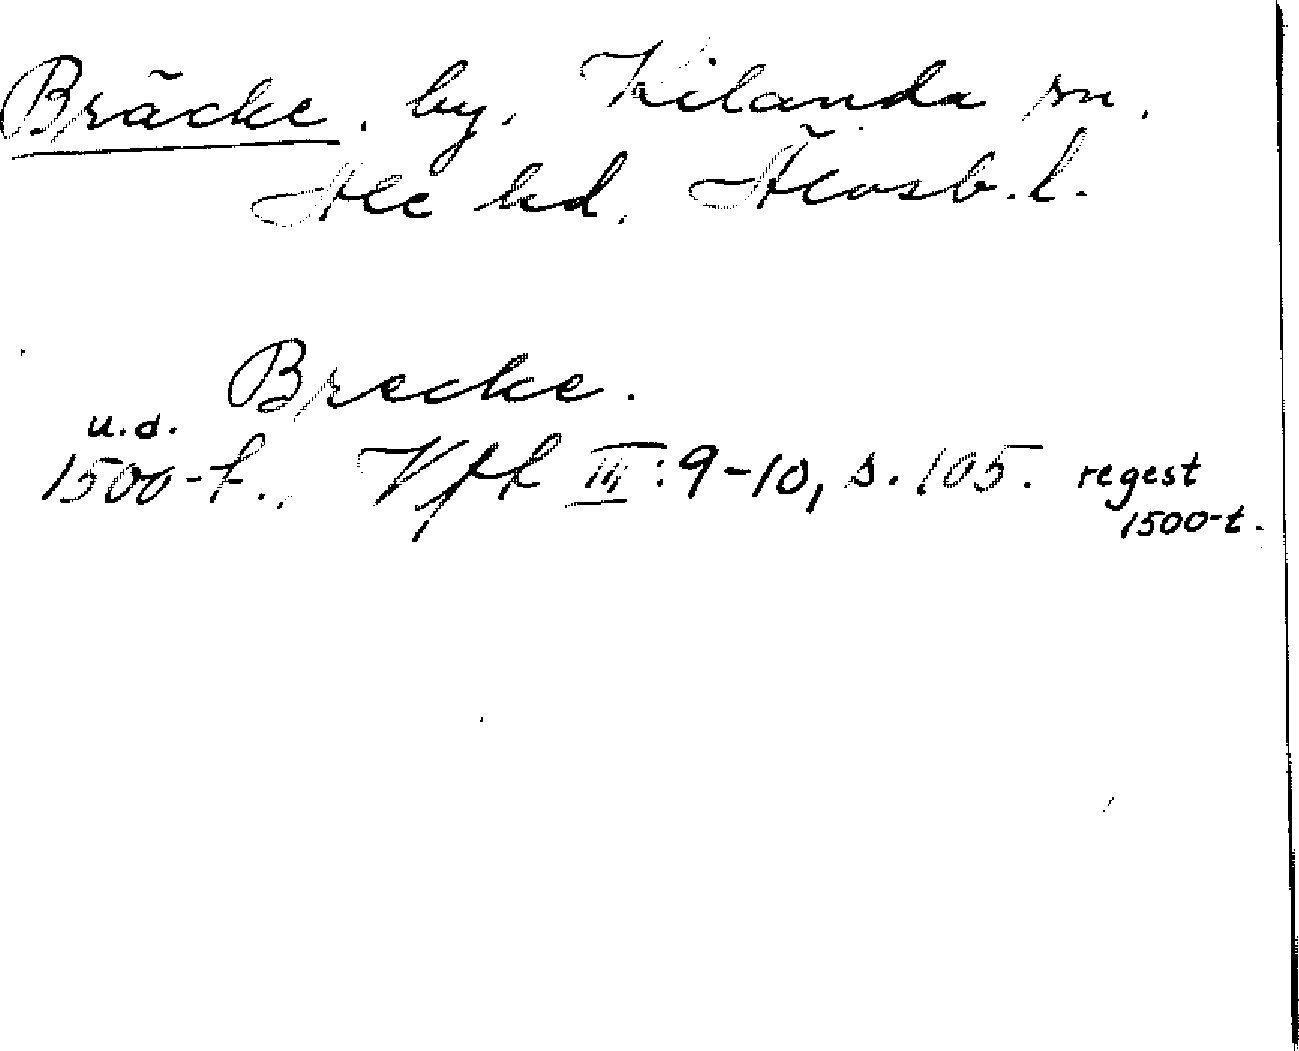 Bräcke. by. Kilanda sn.
Ale hd. Älvsb. l.
Brecke.
u.d.
1500-t. Vfrk III: 9-10, s. 105. regest
1500-t.